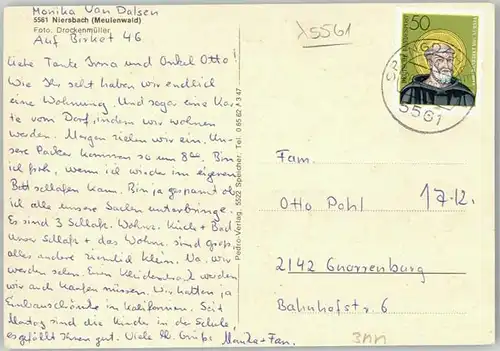 Monika Van Dalsen
5561 Niersbach (Meulenwald)
Foto: Drockenmüller
Auf Birket 46
Liebe Tante Irma und Onkel Otto!
Wie Ihr seht haben wir endlich
eine Wohnung. Und sogar eine Kar-
te vom Dorf, indem wir wohnen
werden. Morgen ziehen wir ein. Un-
sere Packer kommen so um 8°°. Bin
ich froh, wenn ich wieder im eigenen
Bett schlafen kann. Bin ja gespannt ob
ich alle unsere Sachen unterbringe.
Es sind 3 Schlafz. Wohnz. Küch + Bad.
Unser Schlafz + das Wohnz. sind groß,
alles andere ziemlich klein. Na, wir
werden sehen. Einen Kleiderschr. werden
wir auch kaufen müssen. Wir hatten ja
Einbauschränke in Kalifornien. Seit
Montag sind die Kinder in der Schule,
es gefällt Ihnen gut. Viele lb. Grüße Monika + Fam.
Pedro-Verlag, 5522 Speicher, Tel. 0 65 62 / 3 47
5561
50
SPANGD
5561
Fam.
Otto Pohl
17.12.
2142 Gnarrenburg
Bahnhofstr. 6